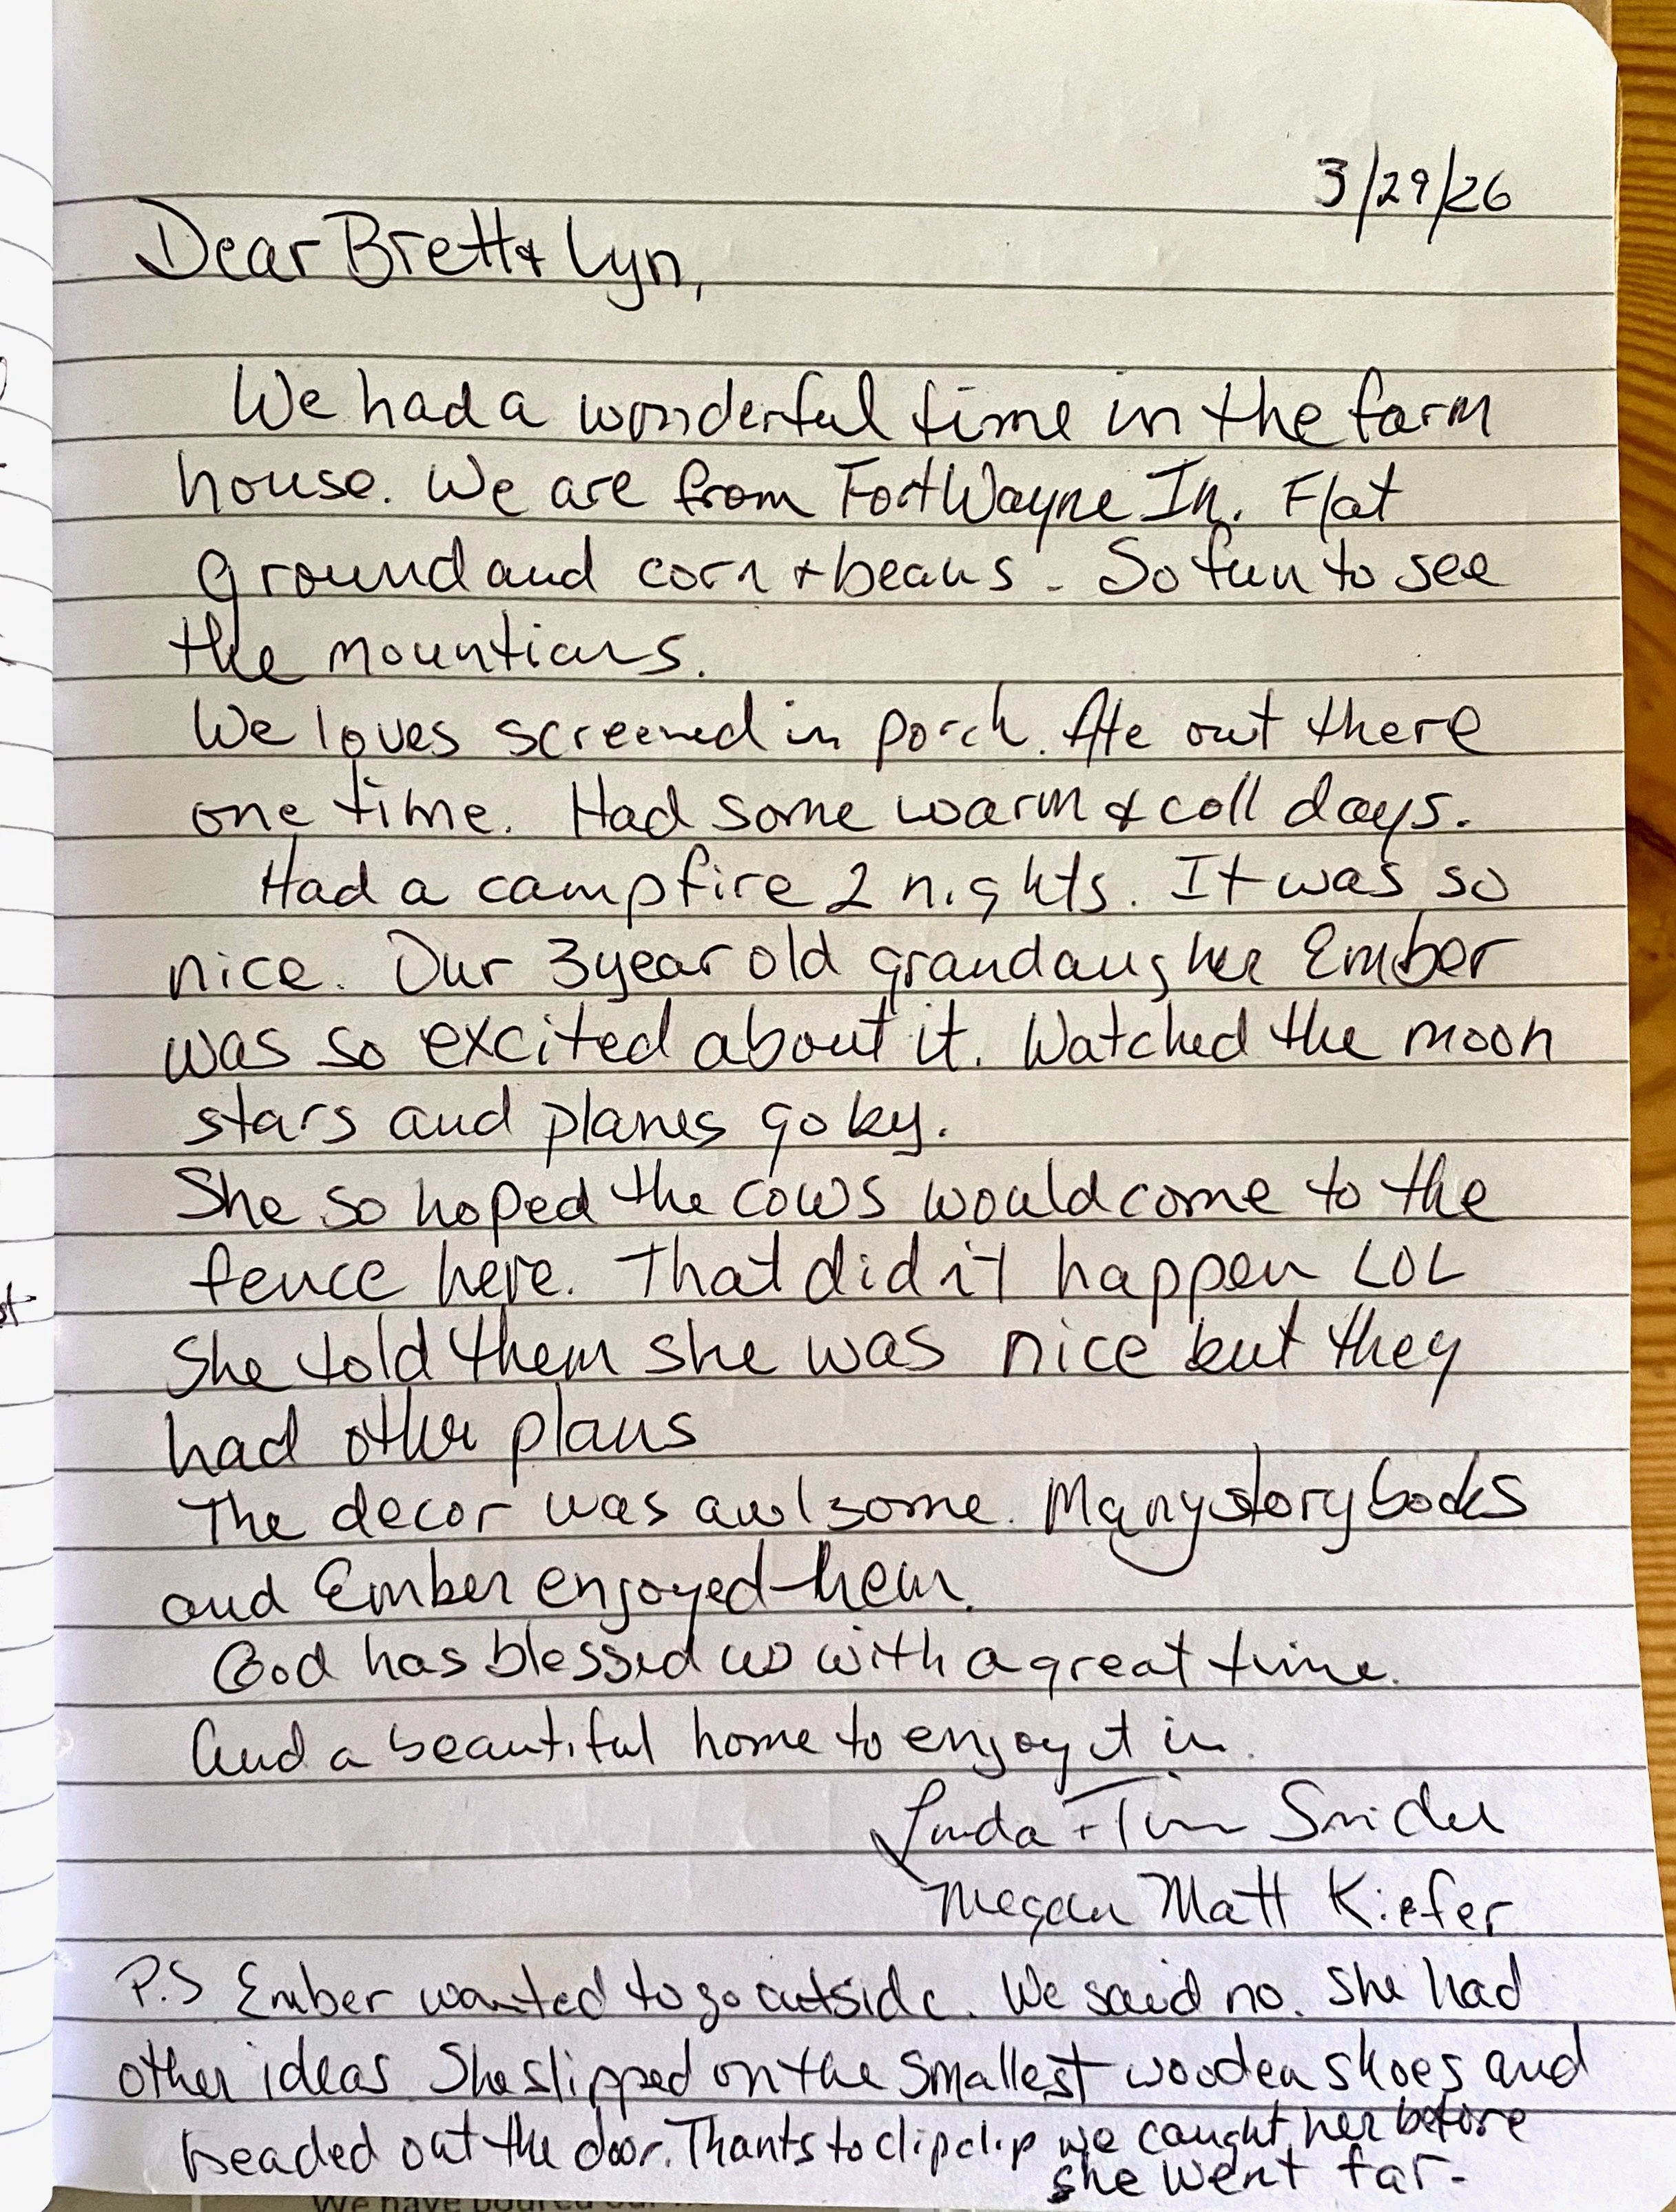 3/29/26
Dear Brett & Lyn,
We had a wonderful time in the farm
house. We are from Fort Wayne In. Flat
ground and corn + beans - So fun to see
the mountians.
We loves screened in porch. Ate out there
one time. Had some warm & coll days.
Had a campfire 2 nights. It was so
nice. Our 3 year old grandaugher Ember
was so excited about it. Watched the moon
stars and planes go by.
She so hoped the cows would come to the
fence here. That didn't happen LOL
She told them she was nice but they
had other plans
The decor was awlsome. Many story books
and Ember enjoyed them.
God has blessed us with a great time.
And a beautiful home to enjoy it in.
Linda + Tim Snider
Megan Matt Kiefer
P.S Ember wanted to go outside. We said no. She had
other ideas She slipped on the smallest wooden shoes and
headed out the door. Thanks to clip clip we caught her before
she went far-
We have poured our